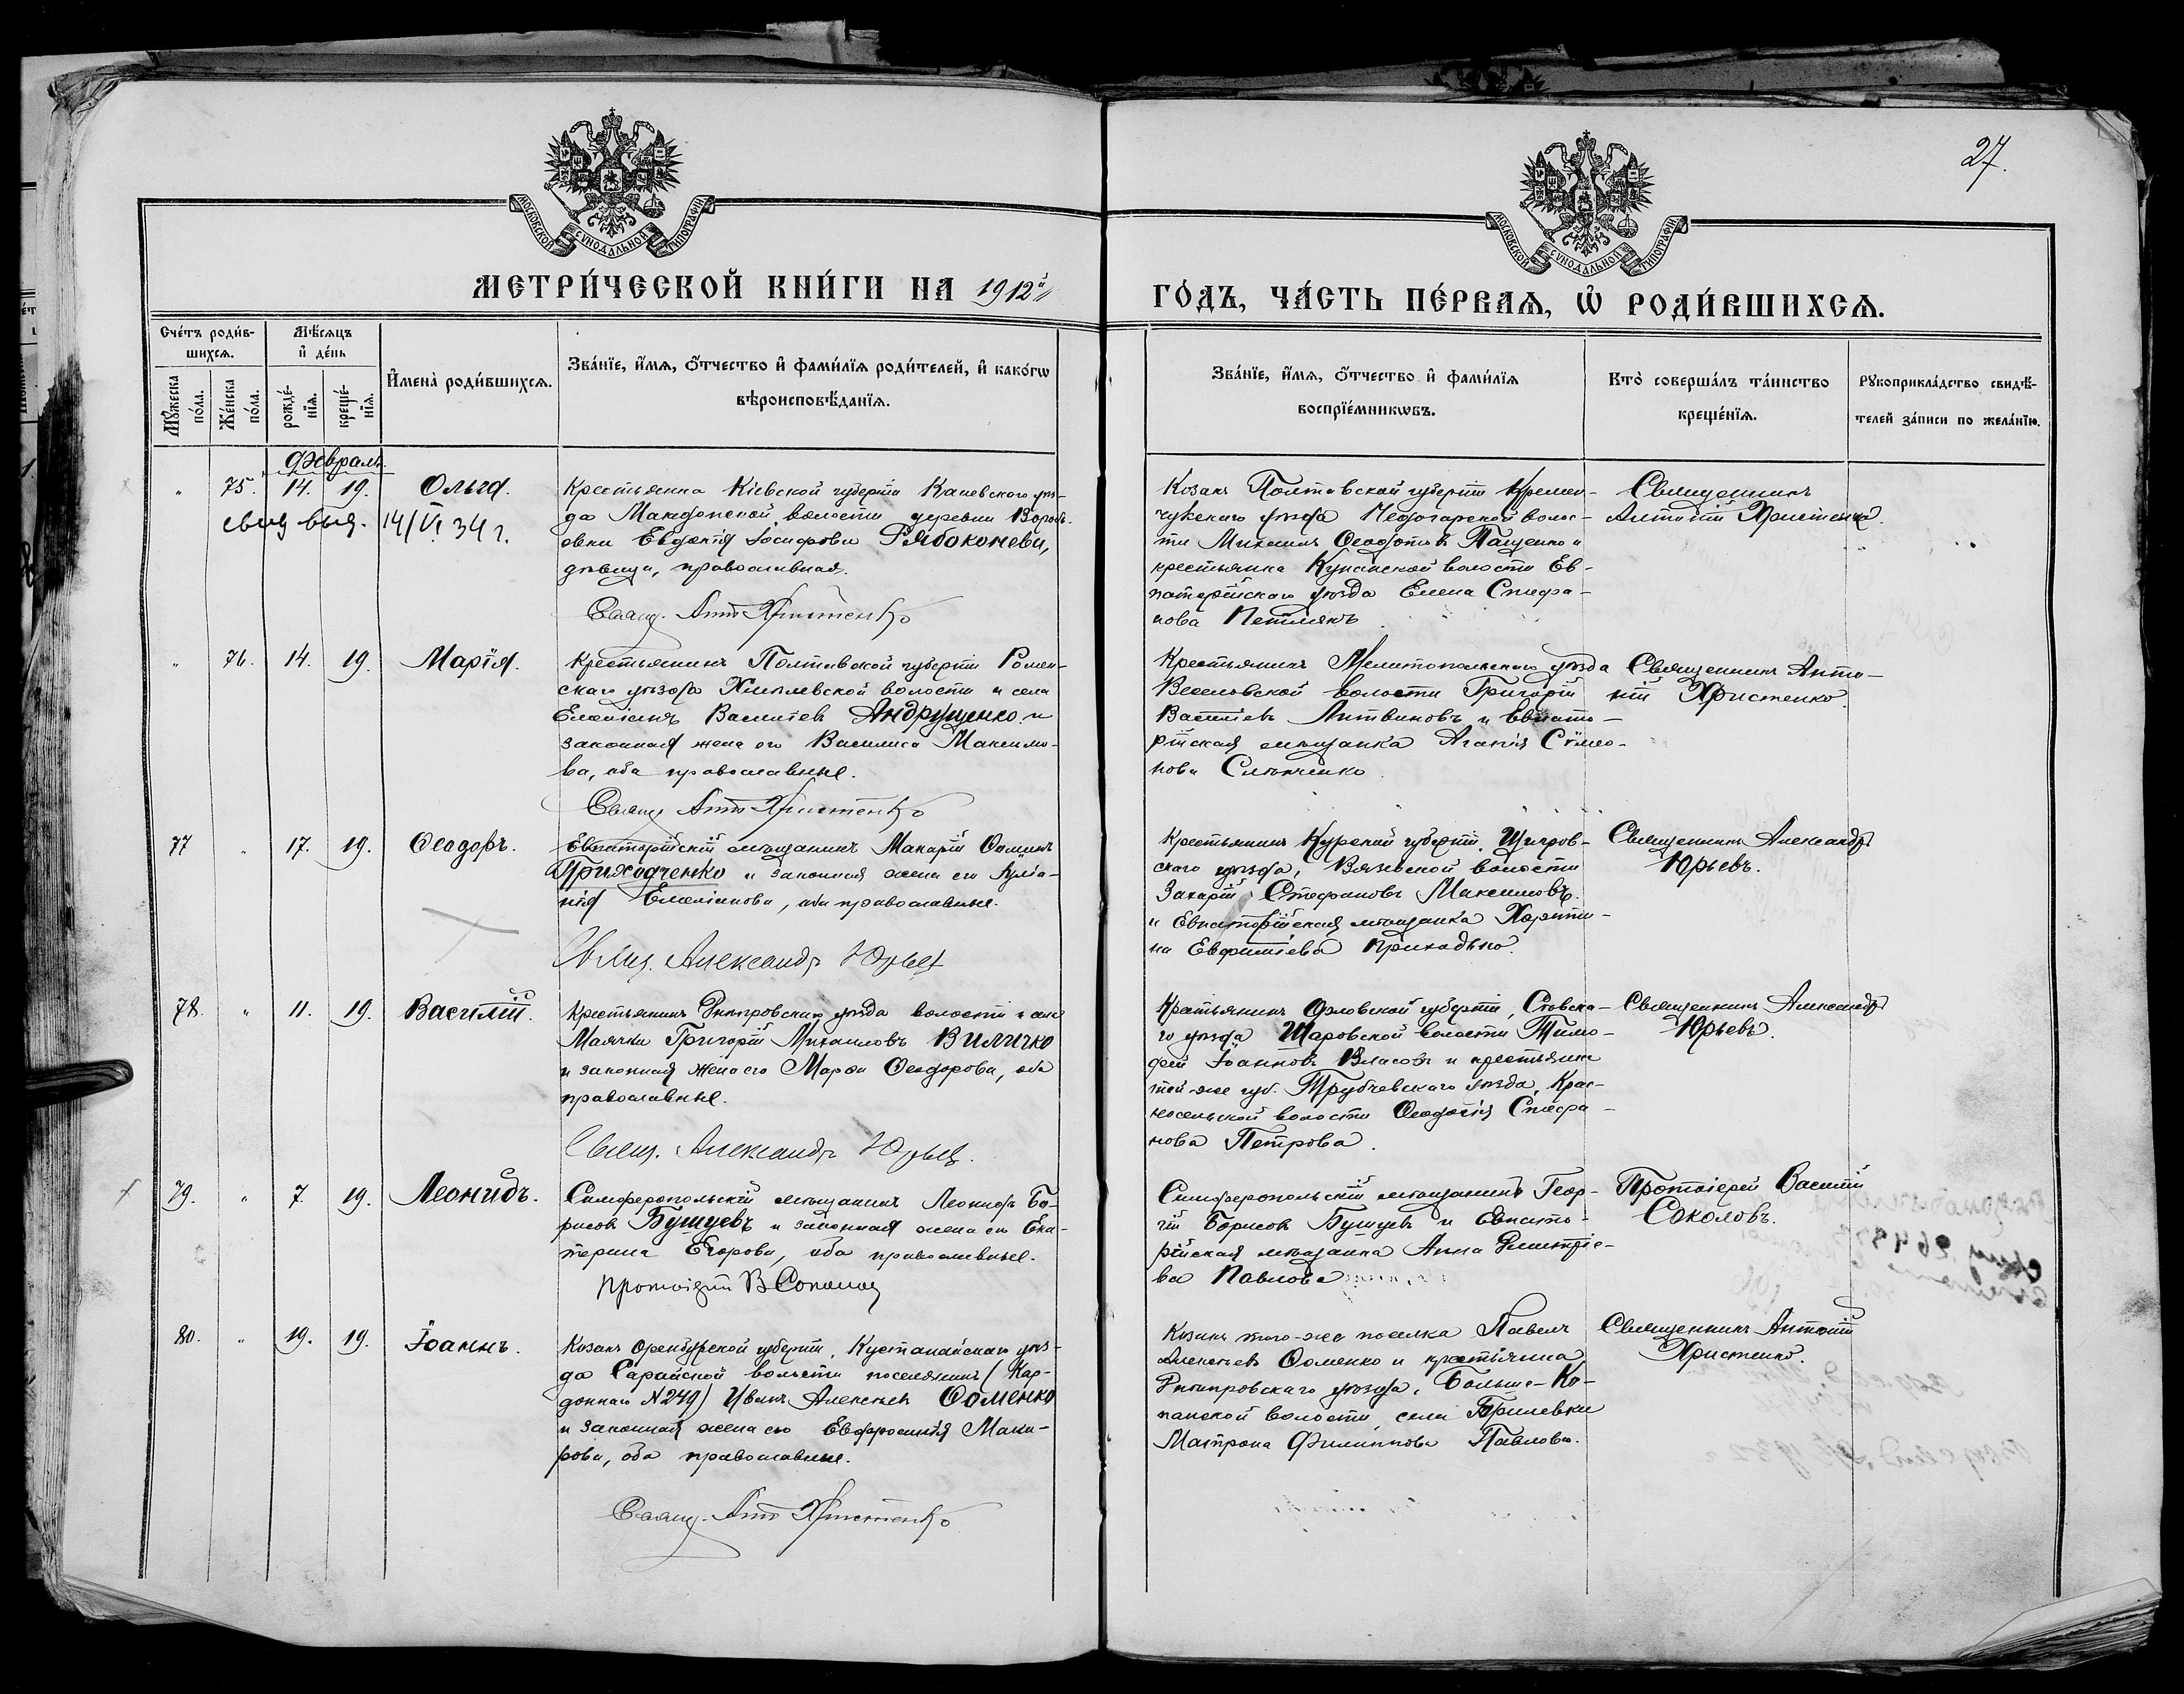 27.
МОСКОВСКОЙ СѴНОДАЛЬНОЙ ТИПОГРАФІИ
МОСКОВСКОЙ СѴНОДАЛЬНОЙ ТИПОГРАФІИ
МЕТРИ́ЧЕСКОЙ КНИ́ГИ НА 1912й
ГО́ДЪ, ЧА́СТЬ ПЕ́РВАѦ, Ѡ҆ РОДИ́ВШИХСѦ.
Сче́тъ роди́в-
шихсѧ.
Мѣ́сѧцъ
и҆ де́нь
И҆мена̀ роди́вшихсѧ.
Зва́нїе, и҆́мѧ, ѻ҆́тчество и҆ фами́лїѧ роди́телей, и҆ како́гѡ
вѣроисповѣ́данїѧ.
Мꙋ́жеска
по́ла.
Же́нска
по́ла.
рожде́-
нїѧ.
креще́-
нїѧ.
Зва́нїе, и҆́мѧ, ѻ҆́тчество и҆ фами́лїѧ
воспрїе́мникѡвъ.
Кто̀ соверша́лъ та́инство
креще́нїѧ.
Рꙋкоприкла́дство свидѣ́-
телей за́писи по жела́нїю.
Февраль.
" 75. 14. 19. Ольга.
14/VI 34 г.
Крестьянка Кіевской губерніи Каневского уѣз-
да Македонской волости деревни Воробь-
евки Евдокія Іосифова Рябоконева,
дѣвица, православная.
Свящ. Ант. Христенко
Козакъ Полтавской губерніи Кремен-
чугскаго уѣзда Недогарской волос-
ти Михаилъ Ѳеодотовъ Пащенко и
крестьянка Кунанской волости Ев-
паторійскаго уѣзда Елена Стефа-
нова Петлякъ
Священникъ
Антоній Христенко.
" 76. 14. 19. Марія.
Крестьянинъ Полтавской губерніи Ромен-
скаго уѣзда Хмелевской волости и села
Емеліанъ Васильевъ Андрущенко и
законная жена его Василиса Максимо-
ва, оба православные.
Свящ. Ант. Христенко
Крестьянинъ Мелитопольскаго уѣзда
Веселовской волости Григорій
Васильевъ Литвиновъ и Евпато-
рійская мѣщанка Агапія Сѵмео-
нова
Священникъ Анто-
ній Христенко.
77 " 17. 19. Ѳеодоръ.
Евпаторійскій мѣщанинъ Макарій Ѳоминъ
Приходченко и законная жена его Іуліа-
нія Емеліанова, оба православные.
Свящ. Александр Юрьев
Крестьянинъ Курской губерніи, Щигров-
скаго уѣзда, Вязовской волости
Захарій Стефановъ Максимовъ
и Евпаторійская мѣщанка Харити-
на Евфиміева Приходько.
Священникъ Александръ
Юрьевъ.
78. " 11. 19. Василій.
Крестьянинъ Днѣпровскаго уѣзда волости и села
Маячки Григорій Михаиловъ Виличко
и законная жена его Марѳа Ѳеодорова, оба
православные.
Свящ. Александр Юрьев.
Крестьянинъ Орловской губерніи, Сѣвска-
го уѣзда Шаровской волости Тимо-
фей Іоанновъ Власовъ и крестьянка
той-же губ. Трубчевскаго уѣзда, Крас-
носельской волости Ѳеодосія Стефа-
нова Петрова.
Священникъ Александръ
Юрьевъ.
79. " 7. 19. Леонидъ.
Симферопольскій мѣщанинъ Леонидъ Бо-
рисовъ Бушуевъ и законная жена его Ека-
терина Егорова, оба православные.
Протоіерей В Соколов
Симферопольскій мѣщанинъ Геор-
гій Борисовъ Бушуевъ и Евпато-
рійская мѣщанка Анна Димитріе-
ва Павлова
Протоіерей Василій
Соколовъ.
80. " 19. 19. Іоаннъ.
Козакъ Оренбургской губерніи, Кустанайскаго уѣз-
да Сарайской волости поселянинъ (Кор-
доннаго №249) Иванъ Алексѣевъ Ѳоменко
и законная жена его Евфросинія Мака-
рова, оба православные.
Свящ. Ант. Христенко
Козакъ того-же поселка Павелъ
Алексѣевъ Ѳоменко и крестьянка
Днѣпровскаго уѣзда, Больше-Ко-
панской волости села Брилевки
Матрона Филиппова Павлова.
Священникъ Антоній
Христенко.